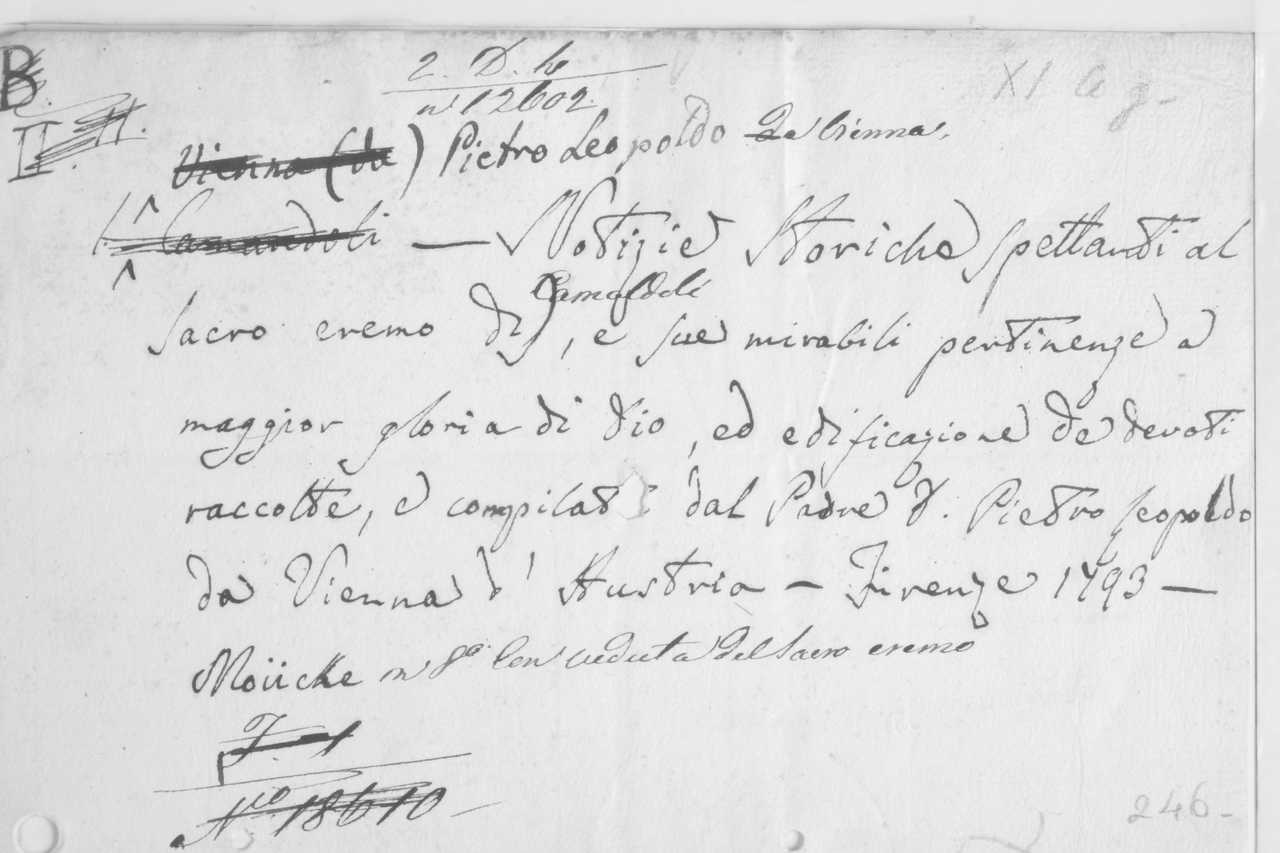 B
2. D. 4
XI a g-
n° 12602
II.
Vienna (da) Pietro Leopoldo Da Vienna.
Camandoli — Notizie Storiche spettanti al
Camaldoli
sacro eremo di, e sue mirabili pertinenze a
maggior gloria di Dio, ed edificazione de devoti
raccolte, e compilate dal Padre D. Pietro Leopoldo
da Vienna d'Austria — Firenze 1793 —
Moücke in 8° Con veduta del Sacro eremo
N.ro 18610
246-